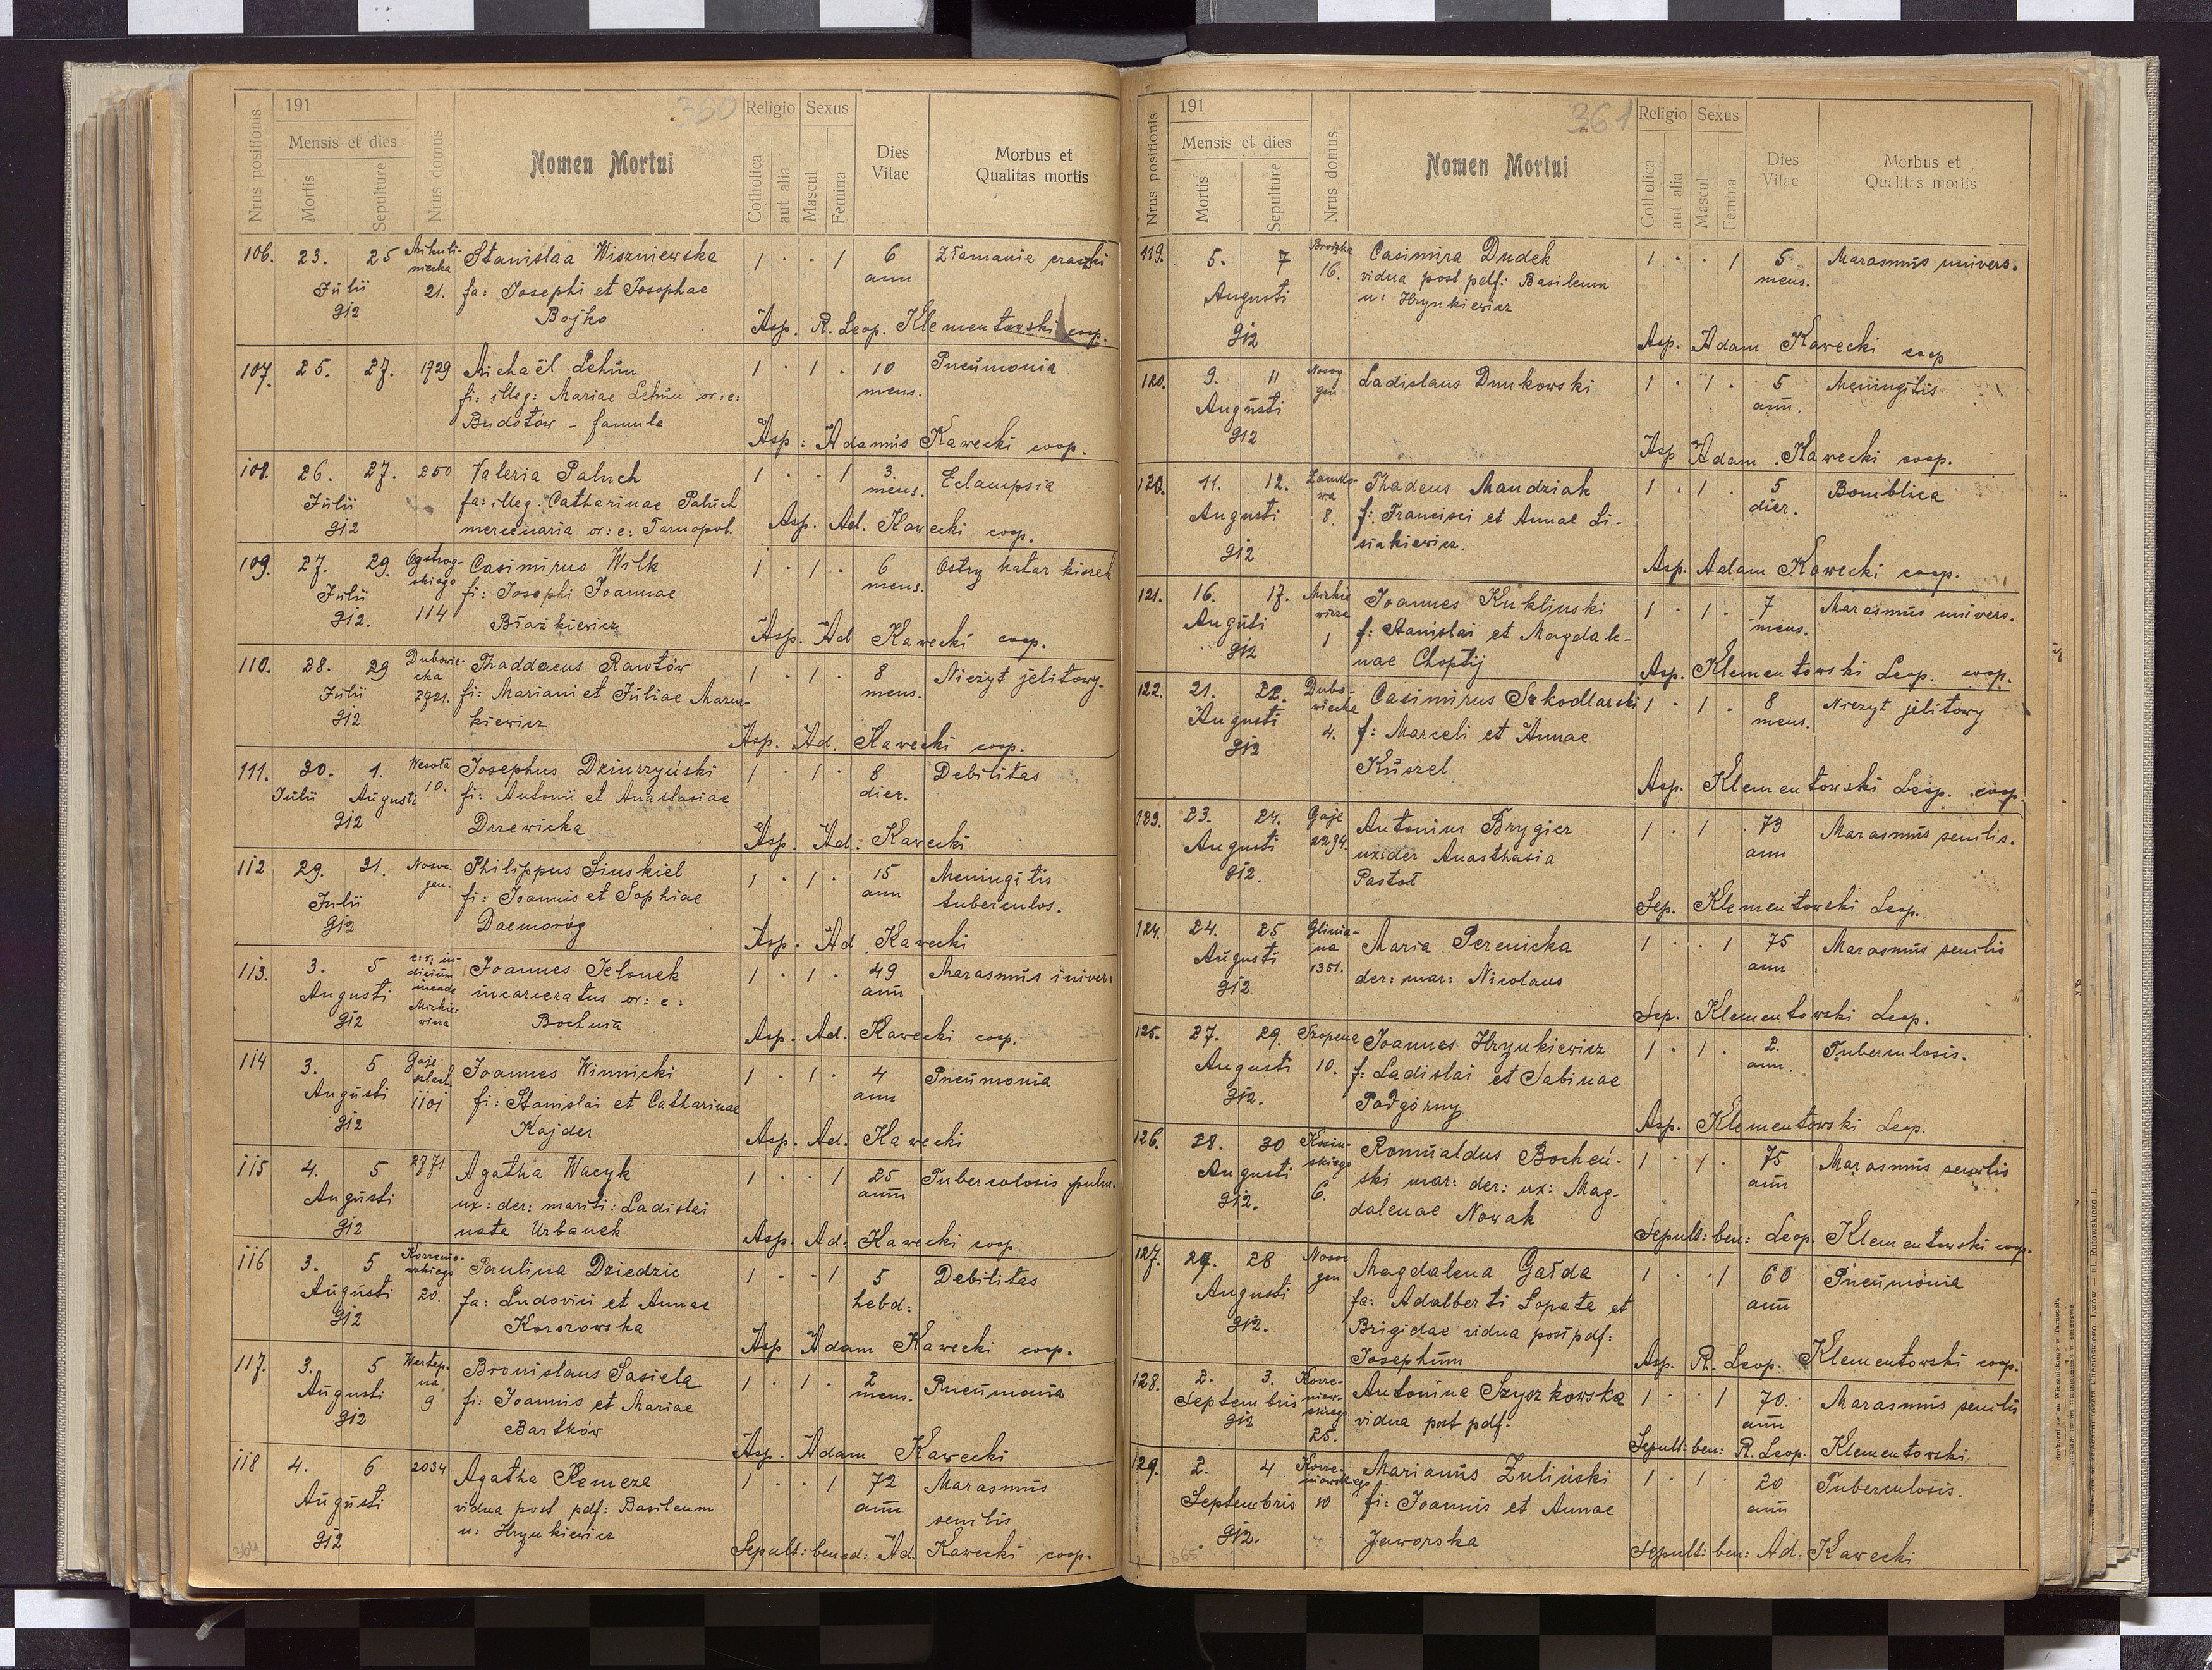 191
360
Nrus positionis
Mensis et dies
Mortis
Sepulture
Nrus domus
Nomen Mortui
Religio
Sexus
Cotholica
aut alia
Mascul
Femina
Dies Vitae
Morbus et
Qualitas mortis
106. 23. 25 Stanislaa Wiszniewska 1 · · 1 6 Złamanie czaszki
Julii 21. fa: Josephi et Josophae ann
912 Bojko
Asp. R. Leop. Klementowski coop.
107. 25. 27. 1729 Michaël Lehün 1 · 1 · 10 Pneumonia
fi: illeg: Mariae Lehün or: e: mens.
Budotów - famula
Asp: Adamus Kawecki coop.
108. 26. 27. 250 Valeria Paluch 1 · · 1 3. Eclampsia
Julii fa: illeg. Catharinae Paluch mens.
912 mercenaria or: e: Tarnopol. Asp. Ad. Kawecki coop.
109. 27. 29. Casimirus Wilk 1 · 1 · 6 Ostry katar kiszek
Julii fi: Josephi Joannae mens.
912. 114 Błażkiewicz Asp. Ad Kawecki coop.
110. 28. 29 Thaddaeus Rawłów 1 · 1 · 8 Nieżyt jelitowy.
Julii 2721. fi: Mariani et Juliae Mazur- mens.
912 kiewicz
Asp. Ad. Kawecki coop.
111. 30. 1. Wesoła Josephus Dziurzyński 1 · 1 · 8 Debilitas
Julii Augusti 10. fi: Antonii et Anastasiae dier.
912 Drzewicka Asp. Ad: Kawecki
112 29. 31. Nosoc. Philippus Siuskiel 1 · 1 · 15 Meningitis
Julii gen. fi: Joannis et Sophiae ann tuberculos.
912 Daemoróg Asp. Ad Kawecki
113. 3. 5 Joannes Jelonek 1 · 1 · 49 Marasmus univer:
Augusti incarceratus or: e: ann
912 Bochnia Asp. Ad. Kawecki coop.
114 3. 5 Gaje Joannes Winnicki 1 · 1 · 4 Pneumonia
Augusti 1101 fi: Stanislai et Catharinae ann
912 Kajder Asp. Ad. Kawecki
115 4. 5 2771 Agatha Wacyk 1 · · 1 25 Tuberculosis pulm.
Augusti ux: der: mariti: Ladislai ann
912 nata Urbanek Asp. Ad. Kawecki coop.
116 3. 5 Paulina Dziedzic 1 · · 1 5 Debilitas
Augusti 20. fa: Ludovici et Annae hebd:
912 Korszowska Asp Adam Kawecki coop.
117. 3. 5 Bronislaus Sasiela 1 · 1 · 2 Pneumonia
Augusti 9 fi: Joannis et Mariae mens.
912 Bartków Asp. Adam Kawecki
118 4. 6 2034 Agatha Kemeza 1 · · 1 72 Marasmus
Augusti vidua post pdf: Basileum ann senilis
912 n: Hrynkiewicz Sepult: bened: Ad. Kawecki coop.
364
191
361
Nrus positionis
Mensis et dies
Mortis
Sepulture
Nrus domus
Nomen Mortui
Religio
Sexus
Cotholica
aut alia
Mascul
Femina
Dies Vitae
Morbus et
Qualitas mortis
119. 5. 7 Brodzka Casimira Dudek 1 · · 1 5 Marasmus univers.
Augusti 16. vidua post pdf: Basileum mens.
912 n: Hrynkiewicz
Asp. Adam Kawecki coop
120. 9. 11 Nosoc Ladislaus Dmukowski 1 · 1 · 5 Meningitis
Augusti gen ann.
912 Asp Adam Kawecki coop.
120. 11. 12. Zamko- Thadeus Mandziak 1 · 1 · 5 Bomblica
Augusti wa 8. f: Francisci et Annae Li- dier.
912 siakiewicz.
Asp. Adam Kawecki coop.
121. 16. 17. Mickie Joannes Kukliński 1 · 1 · 7 Marasmus univers.
Augusti wicza 1 f: Stanislai et Magdale- mens.
912 nae Choptij Asp. Klementowski Leop. coop.
122. 21. 22. Dubo- Casimirus Szkodlarski 1 · 1 · 8 Nieżyt jelitowy
Augusti wiecka 4. f: Marceli et Annae mens.
912 Kuszel Asp. Klementowski Leop. coop.
123. 23. 24. Gaje Antonius Brygier 1 · 1 · 73 Marasmus senilis.
Augusti 2294. ux: der Anasthasia ann
912. Pastoł Sep. Klementowski Leop.
124. 24. 25 Glinia- Maria Perenicka 1 · · 1 75 Marasmus senilis
Augusti na 1351. der: mar: Nicolaus ann
912 Sep. Klementowski Leop.
125. 27. 29. Szopena Joannes Hrynkiewicz 1 · 1 · 2. Tuberculosis.
Augusti 10. f: Ladislai et Sabinae ann.
912. Podgórny Asp. Klementowski Leop.
126. 28. 30 Romualdus Bocheń- 1 · 1 · 75 Marasmus senilis
Augusti 6. ski mar: der: ux: Mag- ann
912. dalenae Nowak Sepult: ben: Leop. Klementowski coop.
127. 27. 28 Nosoc Magdalena Gajda 1 · · 1 60 Pneumonia
Augusti gen fa: Adalberti Lopata et ann
912. Brigidae vidua post pdf:
Josephum Asp. R. Leop. Klementowski coop.
128. 2. 3. Antonina Szyszkowska 1 · · 1 70. Marasmus senilis
Septembris vidua post pdf: ann
912 25. Sepult: ben: R. Leop. Klementowski
129. 2. 4 Marianus Zuliński 1 · 1 · 20 Tuberculosis.
Septembris 10 fi: Joannis et Annae ann
912. Jaworska Sepult: ben: Ad. Kawecki
365